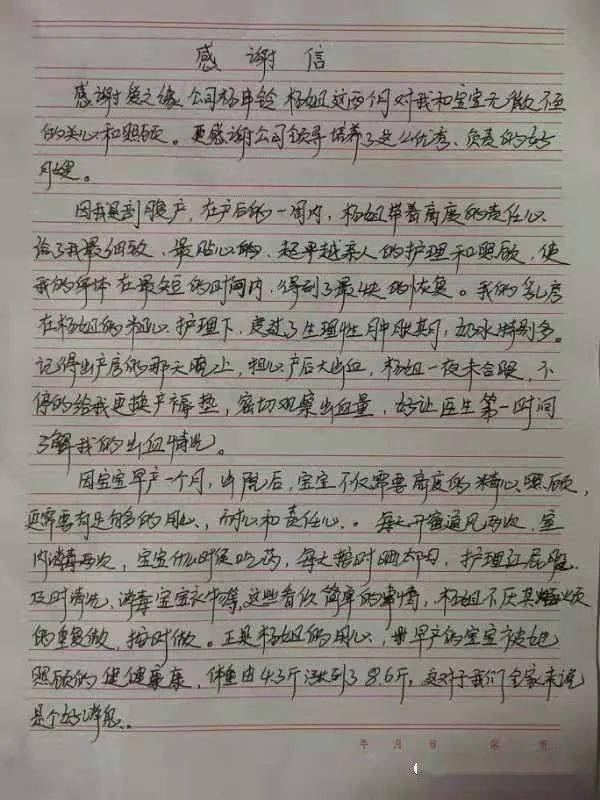 感谢信
感谢爱之缘公司杨申铃杨姐这两个月对我和宝宝无微不至
的关心和照顾。更感谢公司领导培养了这么优秀、负责的好
月嫂。
因我是剖腹产,在产后的一周内,杨姐带着高度的责任心
给了我最细致、最贴心的、超乎越亲人的护理和照顾,使
我的身体在最短的时间内,得到了最快的恢复。我的乳房
在杨姐的精心护理下,度过了生理性月中肤期,奶水特别多。
记得出产房的那天晚上,担心产后大出血,杨姐一夜未合眼,不
停的给我更换产褥垫,密切观察出血量,好让医生第一时间
了解我的出血情况。
因宝宝早产一个月,出院后,宝宝不仅需要高度的精心照顾,
还需要有足够的用心、耐心和责任心。每天开窗通风两次,室
内消毒两次,宝宝什么时侯吃药,每天按时晒太阳,护理红屁股,
及时清洗、消毒宝宝衣物等,这些看似简单的事情,杨姐不厌其烦
的重复做,按时做。正是杨姐的用心,早产的宝宝被她
照顾的健健康康,体重由4.3斤涨到了8.6斤,这对于我们全家来说
是个好消息。
年 月 日 第 页